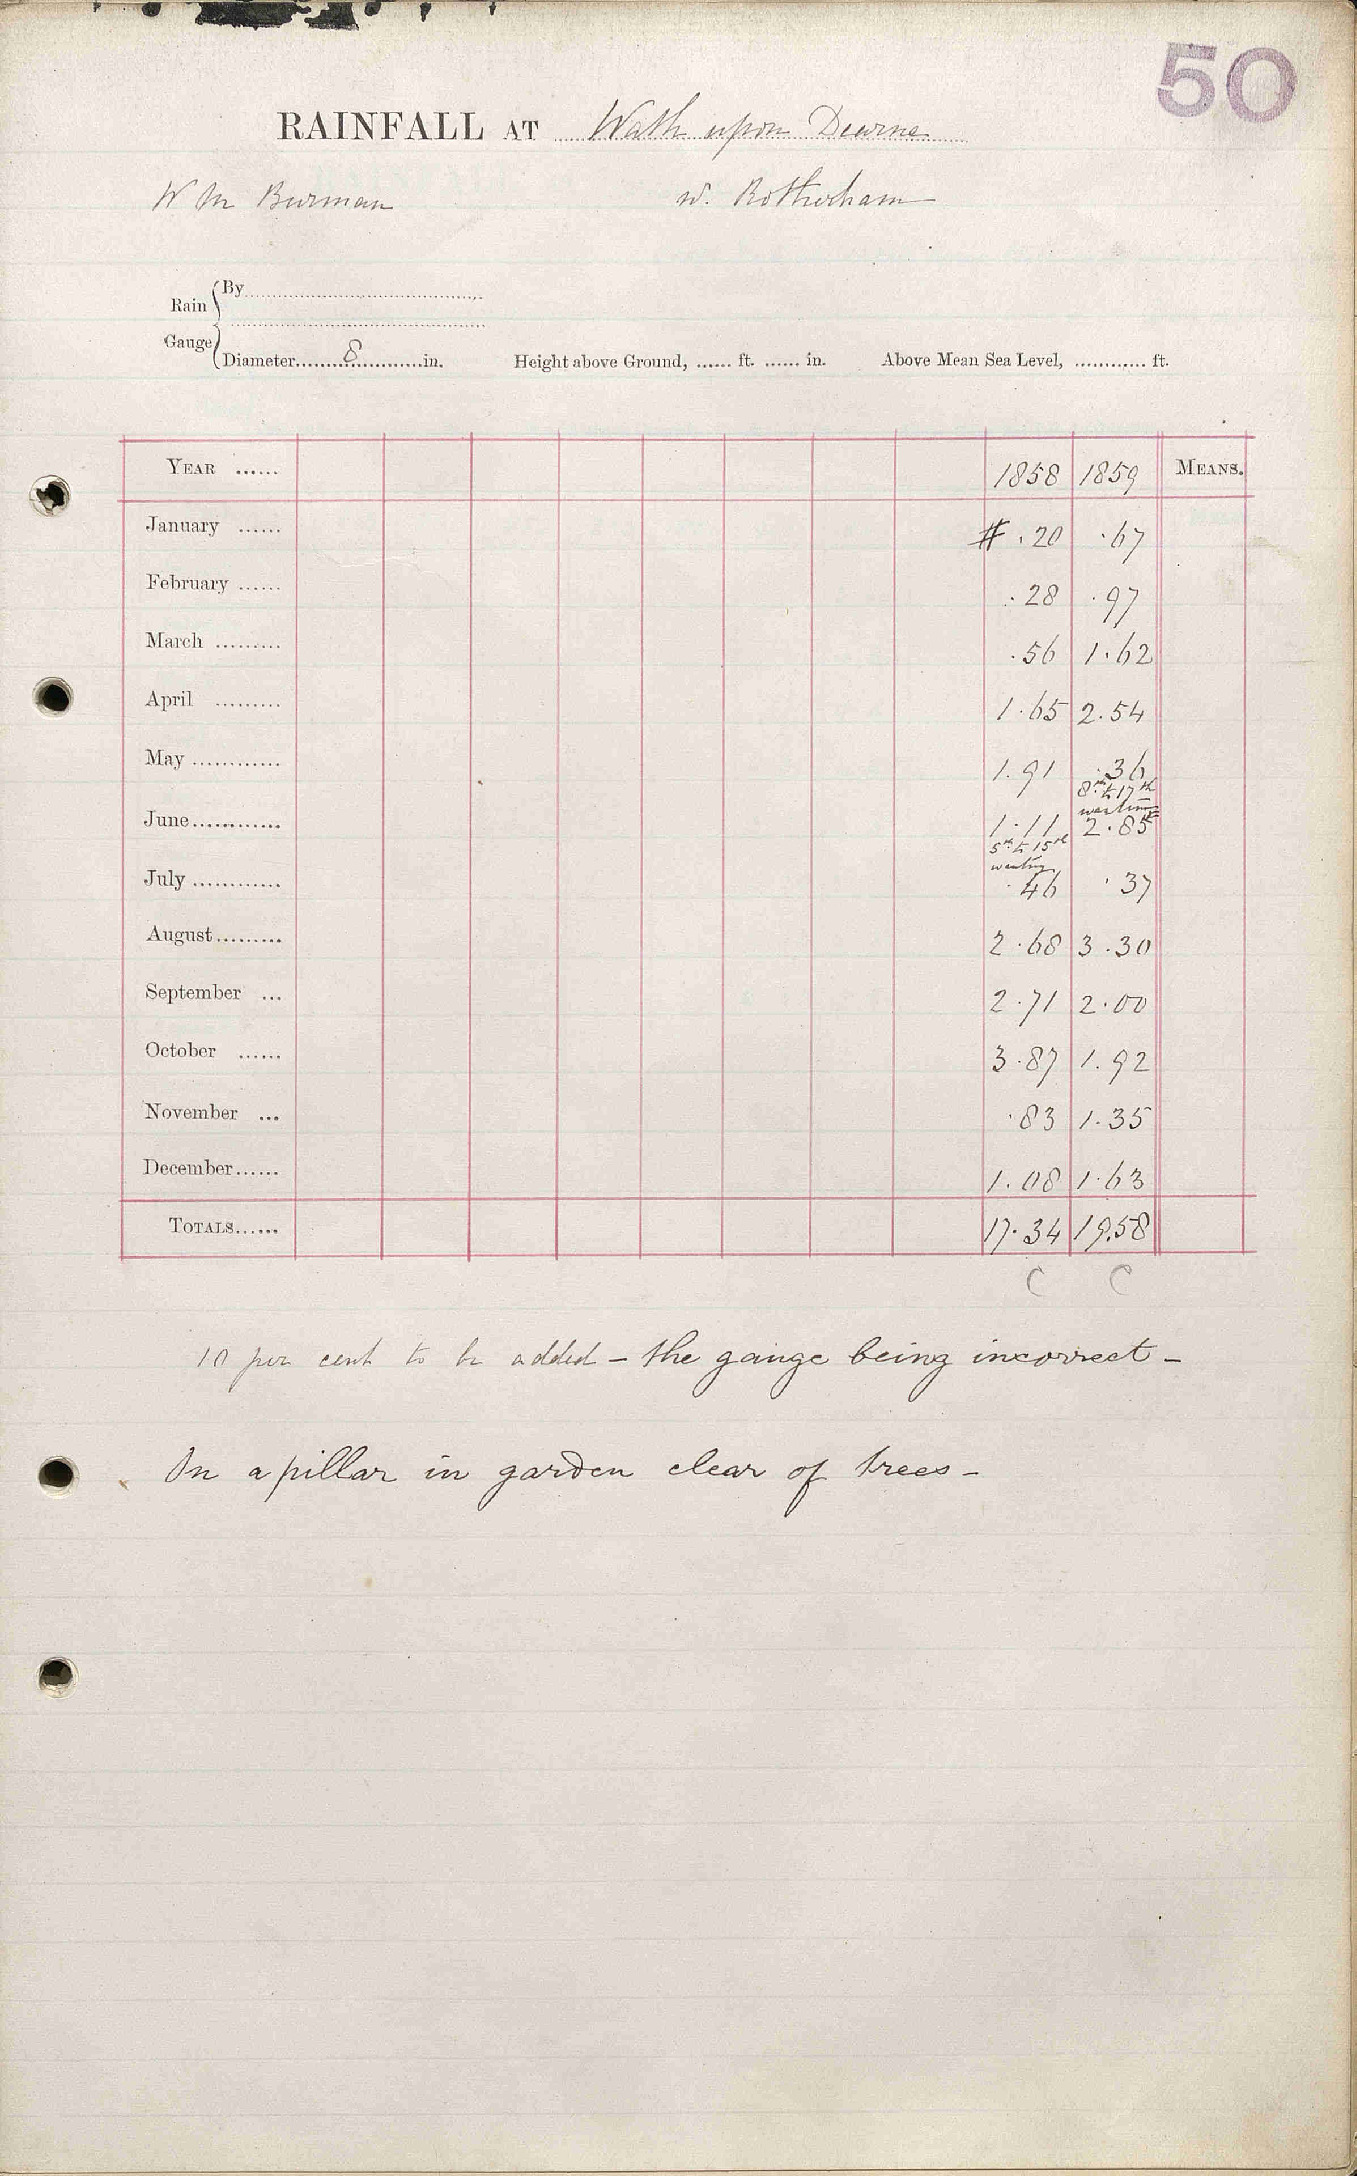 50
RAINFALL AT Wath upon Dearne
Wm Burman n. Rotherham
Rain Gauge { By
Diameter 8 in. Height above Ground, ...... ft. ...... in. Above Mean Sea Level, ............ ft.
YEAR ...... 1858 1859 MEANS.
January ...... # .20 .67
February ...... .28 .97
March ......... .56 1.62
April ......... 1.65 2.54
May ............ 1.91 .36
8th to 17th
wanting
June............ 1.11 2.85
5th to 15th
wanting
July ............ .46 .37
August......... 2.68 3.30
September ... 2.71 2.00
October ...... 3.87 1.92
November ... .83 1.35
December...... 1.08 1.63
TOTALS...... 17.34 19.58
C C
10 per cent to be added - the gauge being incorrect -
On a pillar in garden clear of trees -